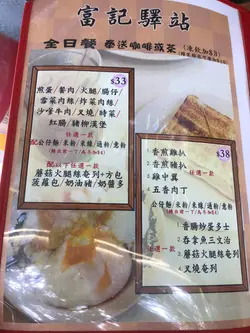 富記驛站
全日餐 奉送咖啡或茶
$33
煎蛋/餐肉/火腿/腸仔/
雪菜肉絲/炸菜肉絲/
沙嗲牛肉/叉燒/時菜/
紅腸/豬柳漢堡
任選一款
配公仔麵/米粉/米線/通粉/意粉
配以下任選一款
蘑菇火腿絲奄列+方包
菠蘿包/奶油豬/奶醬多
$38
香煎雞扒
香煎豬扒
雞中翼
五香肉丁
任選一款
公仔麵/米粉/米線/通粉/意粉
香腸炒蛋多士
吞拿魚三文治
蘑菇火腿絲奄列
叉燒奄列